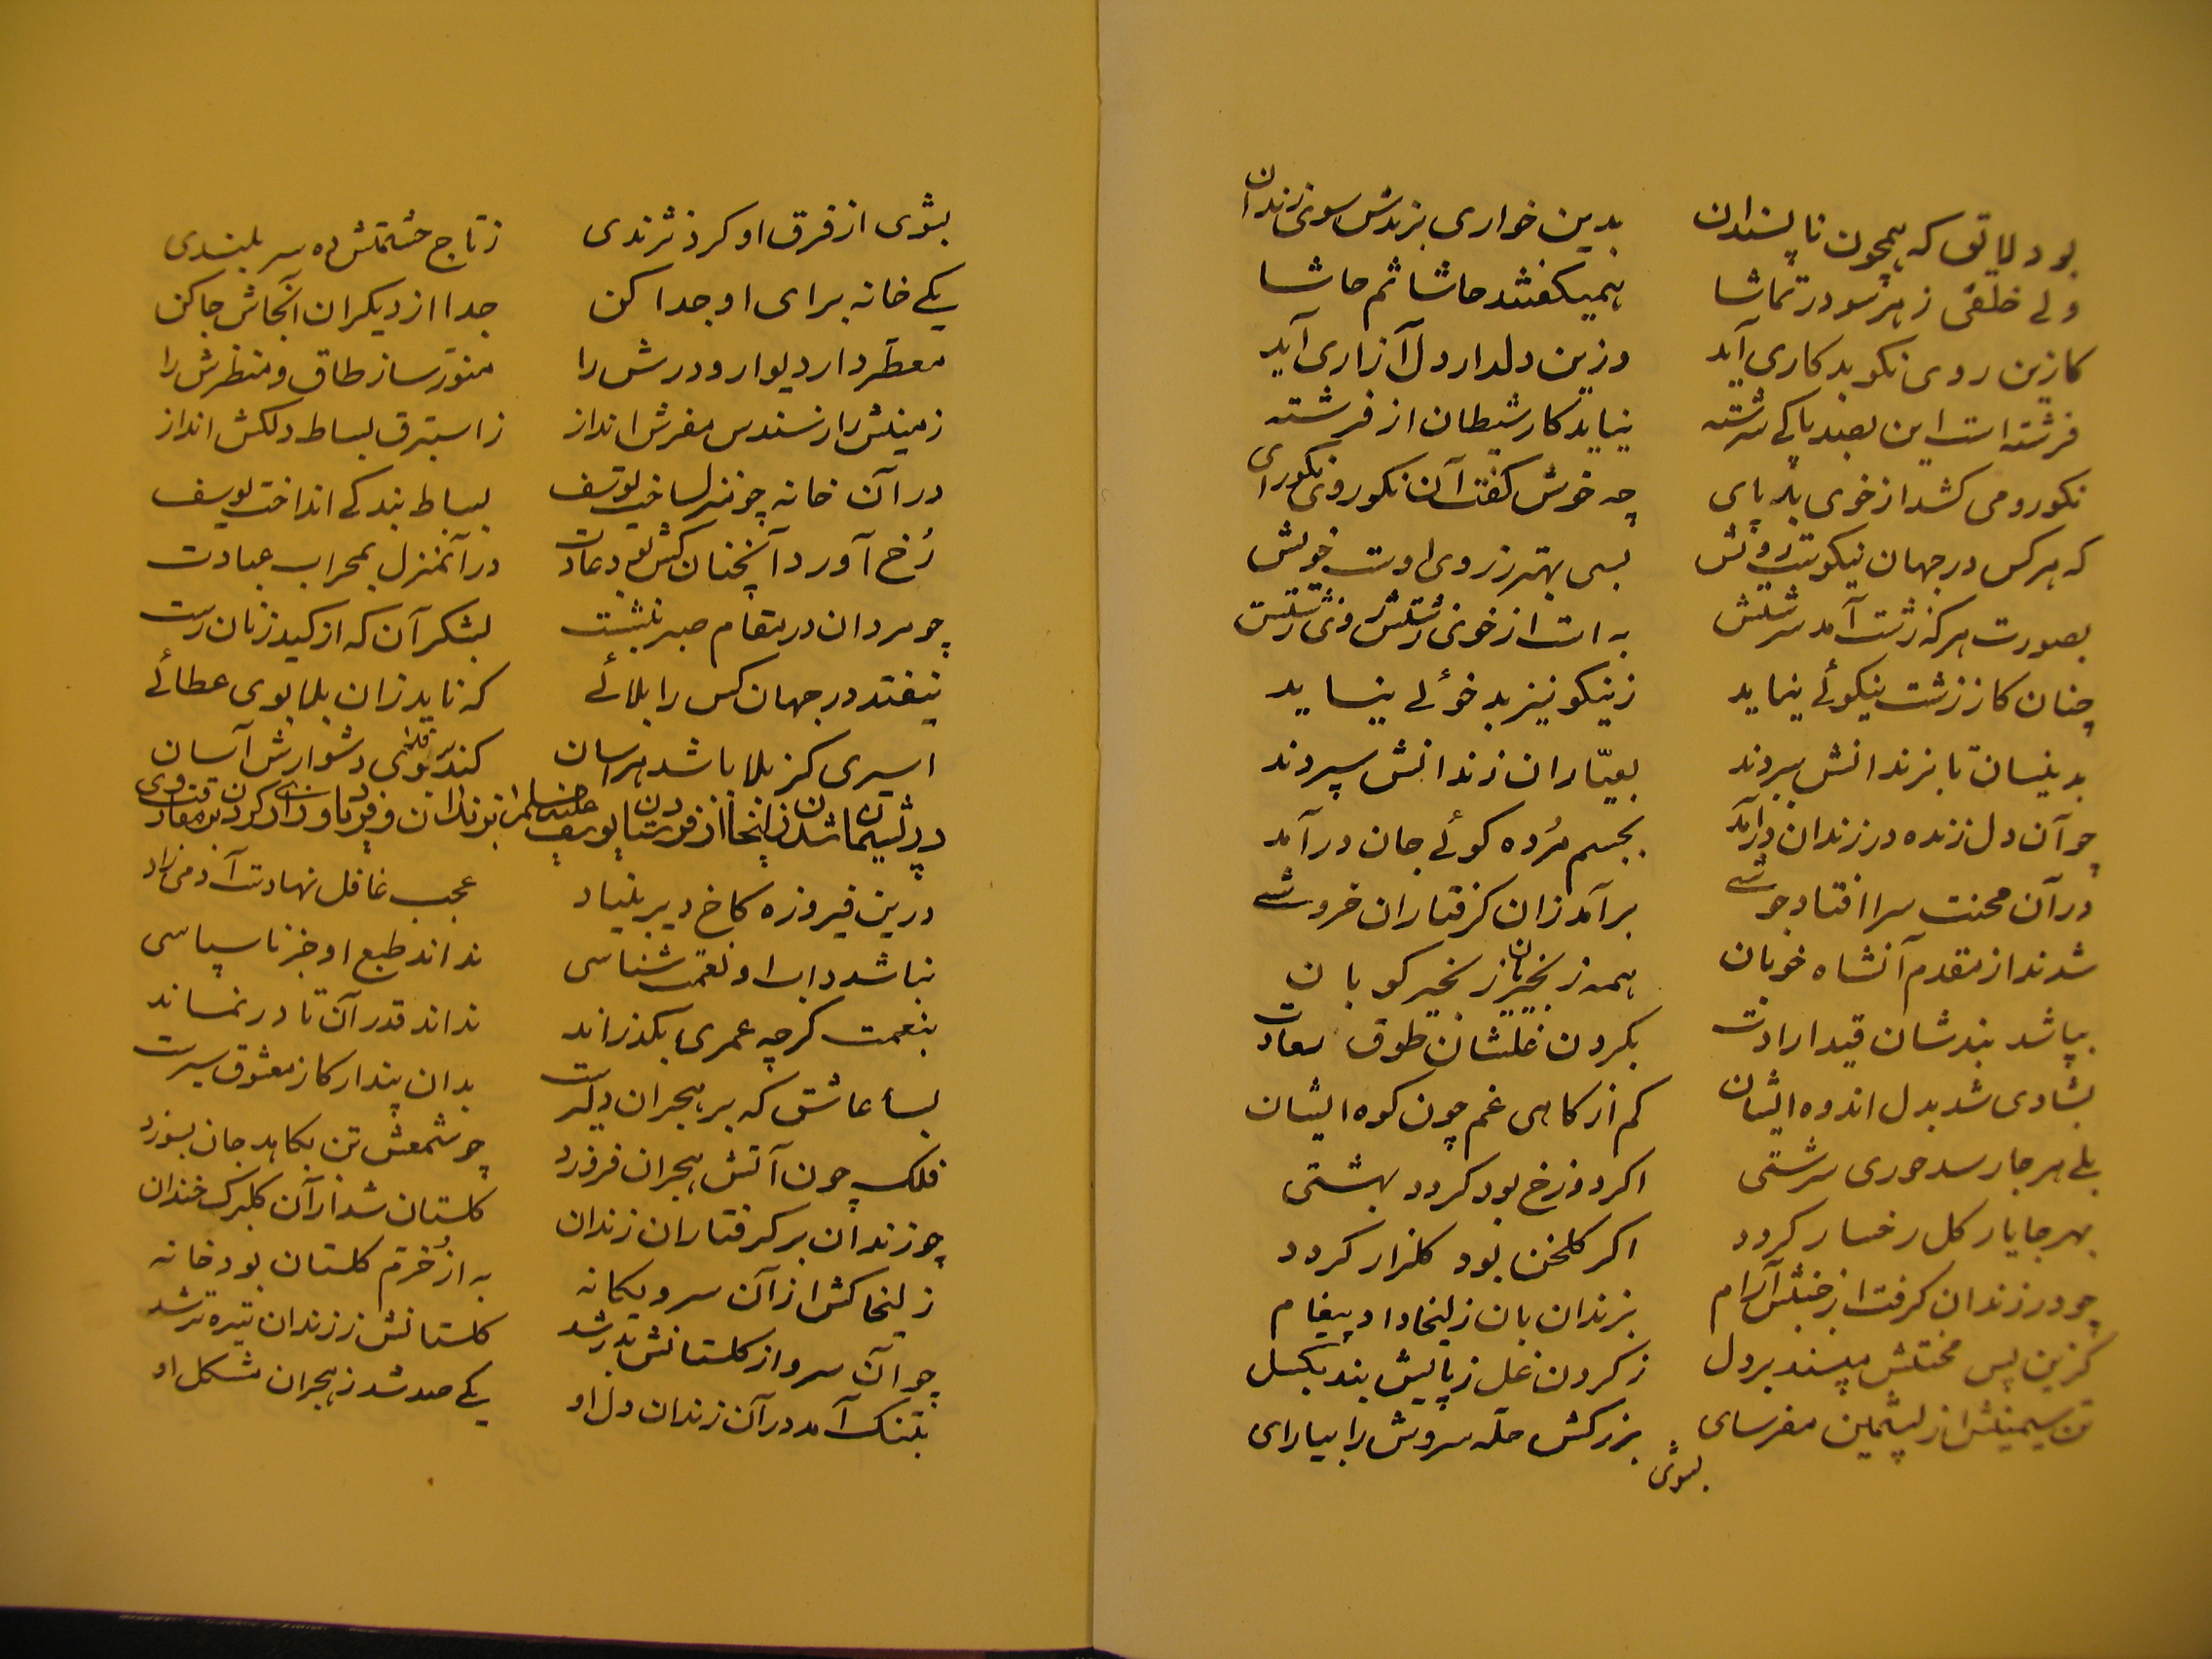 بود لایق که همچون ناپسندان بدین خواری برندش سوی زندان
ولے خلقی ز هر سو در تماشا همیکفتند حاشا ثم حاشا
کازین روی نکو بدکاری آید وزین دلدار دل آزاری آید
فرشته است این بصد پاکے سرشته نیاید کار شیطان از فرشته
نکورو می کشد از خوی بد پای چه خوش کفت آن نکوروی نکورای
که هر کس در جهان نیکوست رویش بسی بهتر ز روی اوست خویش
بصورت هر که زشت آمد سرشتش به است از خوی زشتش روی زشتش
چنان کاز زشت نیکوئے نیاید ز نیکو نیز بدخوئے نیاید
بدینسان تا بزندانش ببردند بعیّاران زندانش سپردند
چو آن دل زنده در زندان درآمد بجسم مُرده کوئے جان درآمد
در آن محنت سرا افتاد جوشے برآمد زان کرفتاران خروشے
شدند از مقدم آنشاه خوبان همه زنجیریان زنجیر کوبان
بپا شد بندشان قید ارادت بکردن غلشان طوق سعادت
بشادی شد بدل اندوه ایشان کم از کاهی غم چون کوه ایشان
بلے هر جا رسد حوری سرشتی اکر دوزخ بود کردد بهشتی
بهر جا یار کل رخسار کردد اکر کلخن بود کلزار کردد
چو در زندان کرفت از جنبش آرام بزندان بان زلیخا داد پیغام
کزین پس محنتش مپسند بر دل ز کردن غل ز پایش بند بکسل
تن سیمینش از پشمین مفرسای بزرکش حله سروش را بیارای
بشوی
بشوی از فرق او کرد نژندی ز تاج حشمتش ده سربلندی
یکے خانه برای او جدا کن جدا از دیکران آنجاش جا کن
معطر دار دیوار و درش را منوّر ساز طاق و منظرش را
زمینش را ز سندس مفرش انداز ز استبرق بساط دلکش انداز
در آن خانه چو منزل ساخت یوسف بساط بندکے انداخت یوسف
رُخ آورد آنچنان کش بود عادت در آنمنزل بمحراب عبادت
چو مردان در مقام صبر بنشست بشکر آن که از کید زنان رست
نیفتد در جهان کس را بلائے که ناید زان بلا بوی عطائے
اسیری کز بلا باشد هراسان کند بوی عطا دشوارش آسان
در پشیمان شدن زلیخا از فرستادن یوسف علیه السلام بزندان و فریاد و زاری کردن در مفارقت وی
درین فیروزه کاخ دیر بنیاد عجب غافل نهادست آدمی زاد
نباشد داب او نعمت شناسی نداند طبع او جز ناسپاسی
بنعمت کرچه عمری بکذراند نداند قدر آن تا درنماند
بسا عاشق که بر هجران دلیرست بدان پندار کاز معشوق سیرست
فلک چون آتش هجران فروزد چو شمعش تن بکاهد جان بسوزد
چو زندان بر کرفتاران زندان کلستان شد از آن کلبرک خندان
زلیخا کش از آن سرو یکانه به از خُرّم کلستان بود خانه
چو آن سرو از کلستانش بدر شد کلستانش ز زندان تیره تر شد
بتنک آمد در آن زندان دل او یکے صد شد ز هجران مشکل او